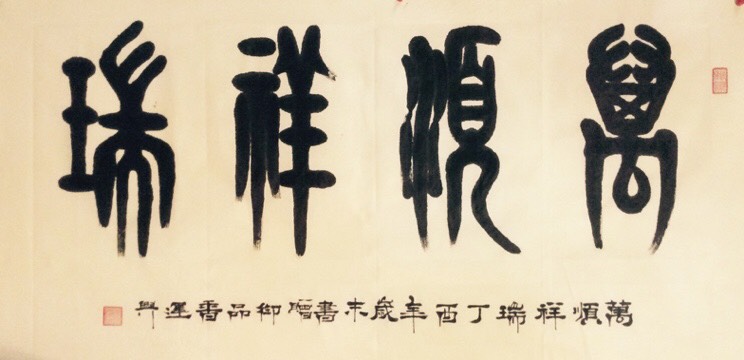 萬順祥瑞
萬順祥瑞丁酉年歲末書贈御品香運